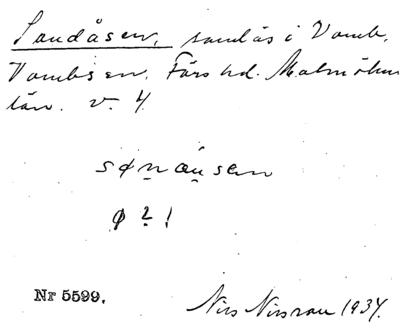 Sandåsen, sandås i Vomb,
Vombs sn. Färs hd. Malmöhus
län. v. 4.
sønåusen
ø 2 !
Nr 5599.
Nils Nilsson 1934.